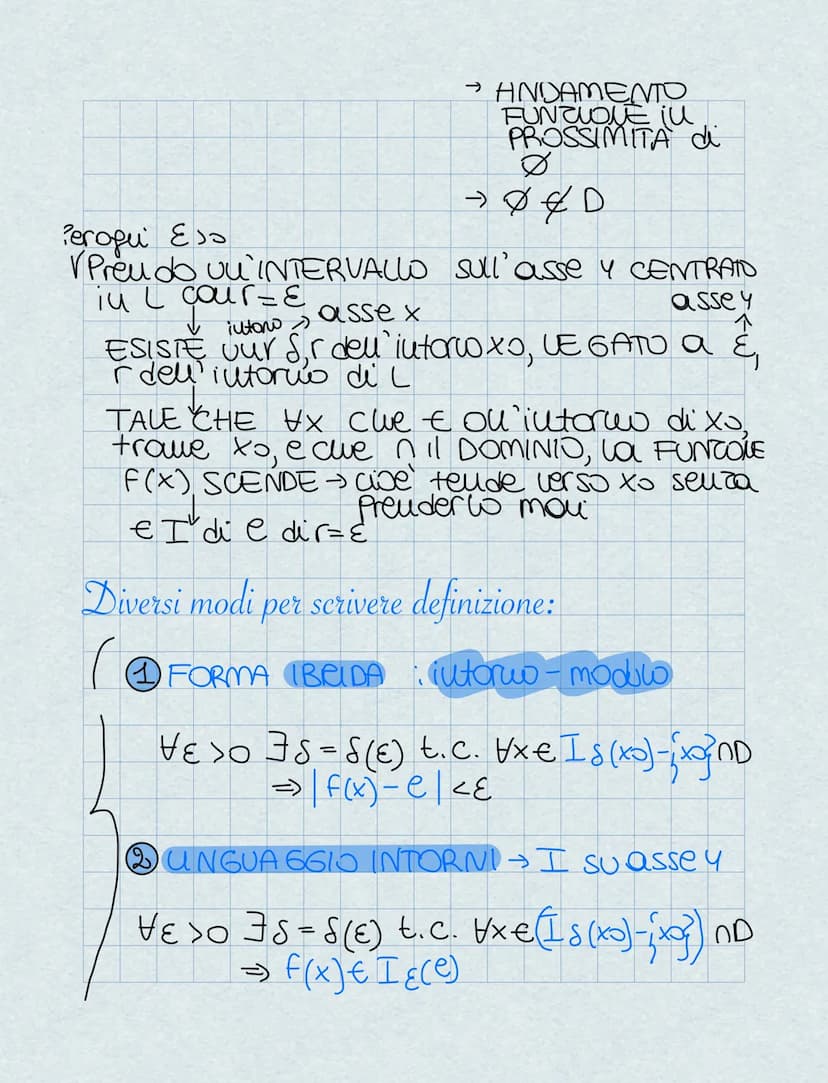 → ANDAMENTO
FUNZIONE in
PROSSIMITÀ di
∅
→ ∅ ∉ D
Perogni ε>0
Prendo un'INTERVALLO sull'asse y CENTRATO
in L con r=ε
asse y
intorno → asse x
ESISTE un r δ, r dell'intorno x0, LEGATO a ε,
r dell'intorno di L
TALE CHE ∀x che ∈ all'intorno di x0,
tranne x0, e che ∩ il DOMINIO, la FUNZIONE
f(x) SCENDE → cioè tende verso x0 senza
prenderlo mai
∈ I di l di r=ε
Diversi modi per scrivere definizione:
① FORMA IBRIDA : intorno - modulo
∀ε>0 ∃δ=δ(ε) t.c. ∀x∈Iδ(x0)-{x0}∩D
⇒ |f(x)-l|<ε
② LINGUAGGIO INTORNI → I su asse y
∀ε>0 ∃δ=δ(ε) t.c. ∀x∈(Iδ(x0)-{x0}) ∩D
⇒ f(x)∈Iε(l)